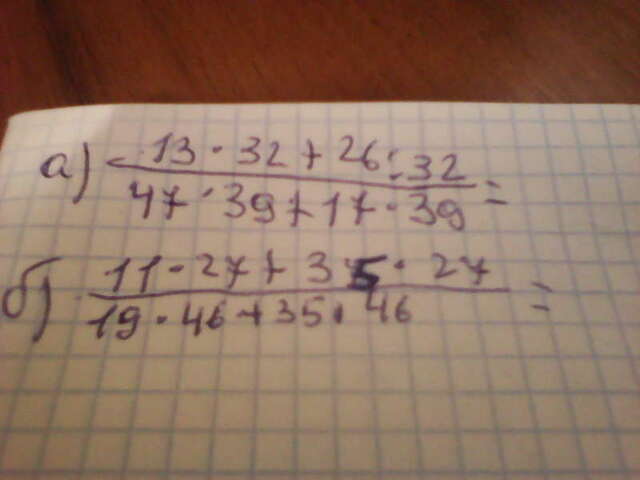 а) 13 · 32 + 26 : 32
47 · 39 + 17 · 39 =
б) 11 · 27 + 35 · 27
19 · 46 + 35 · 46 =